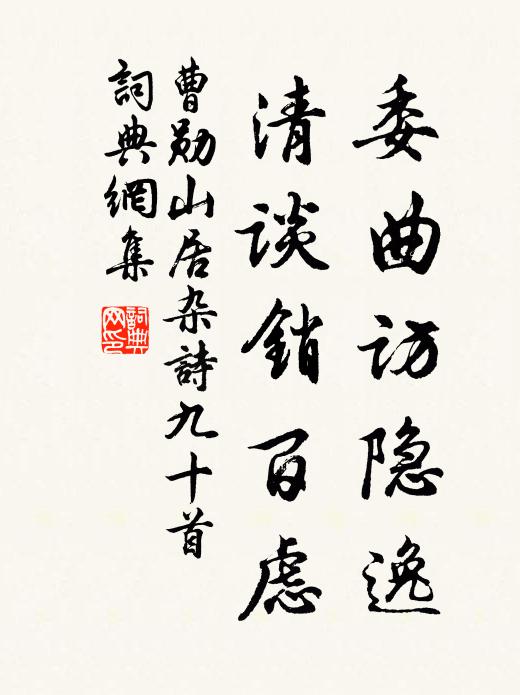 委曲访隐逸
清谈銷百虑
曹勋山居杂詩九十首
詞典網集
詞典网印